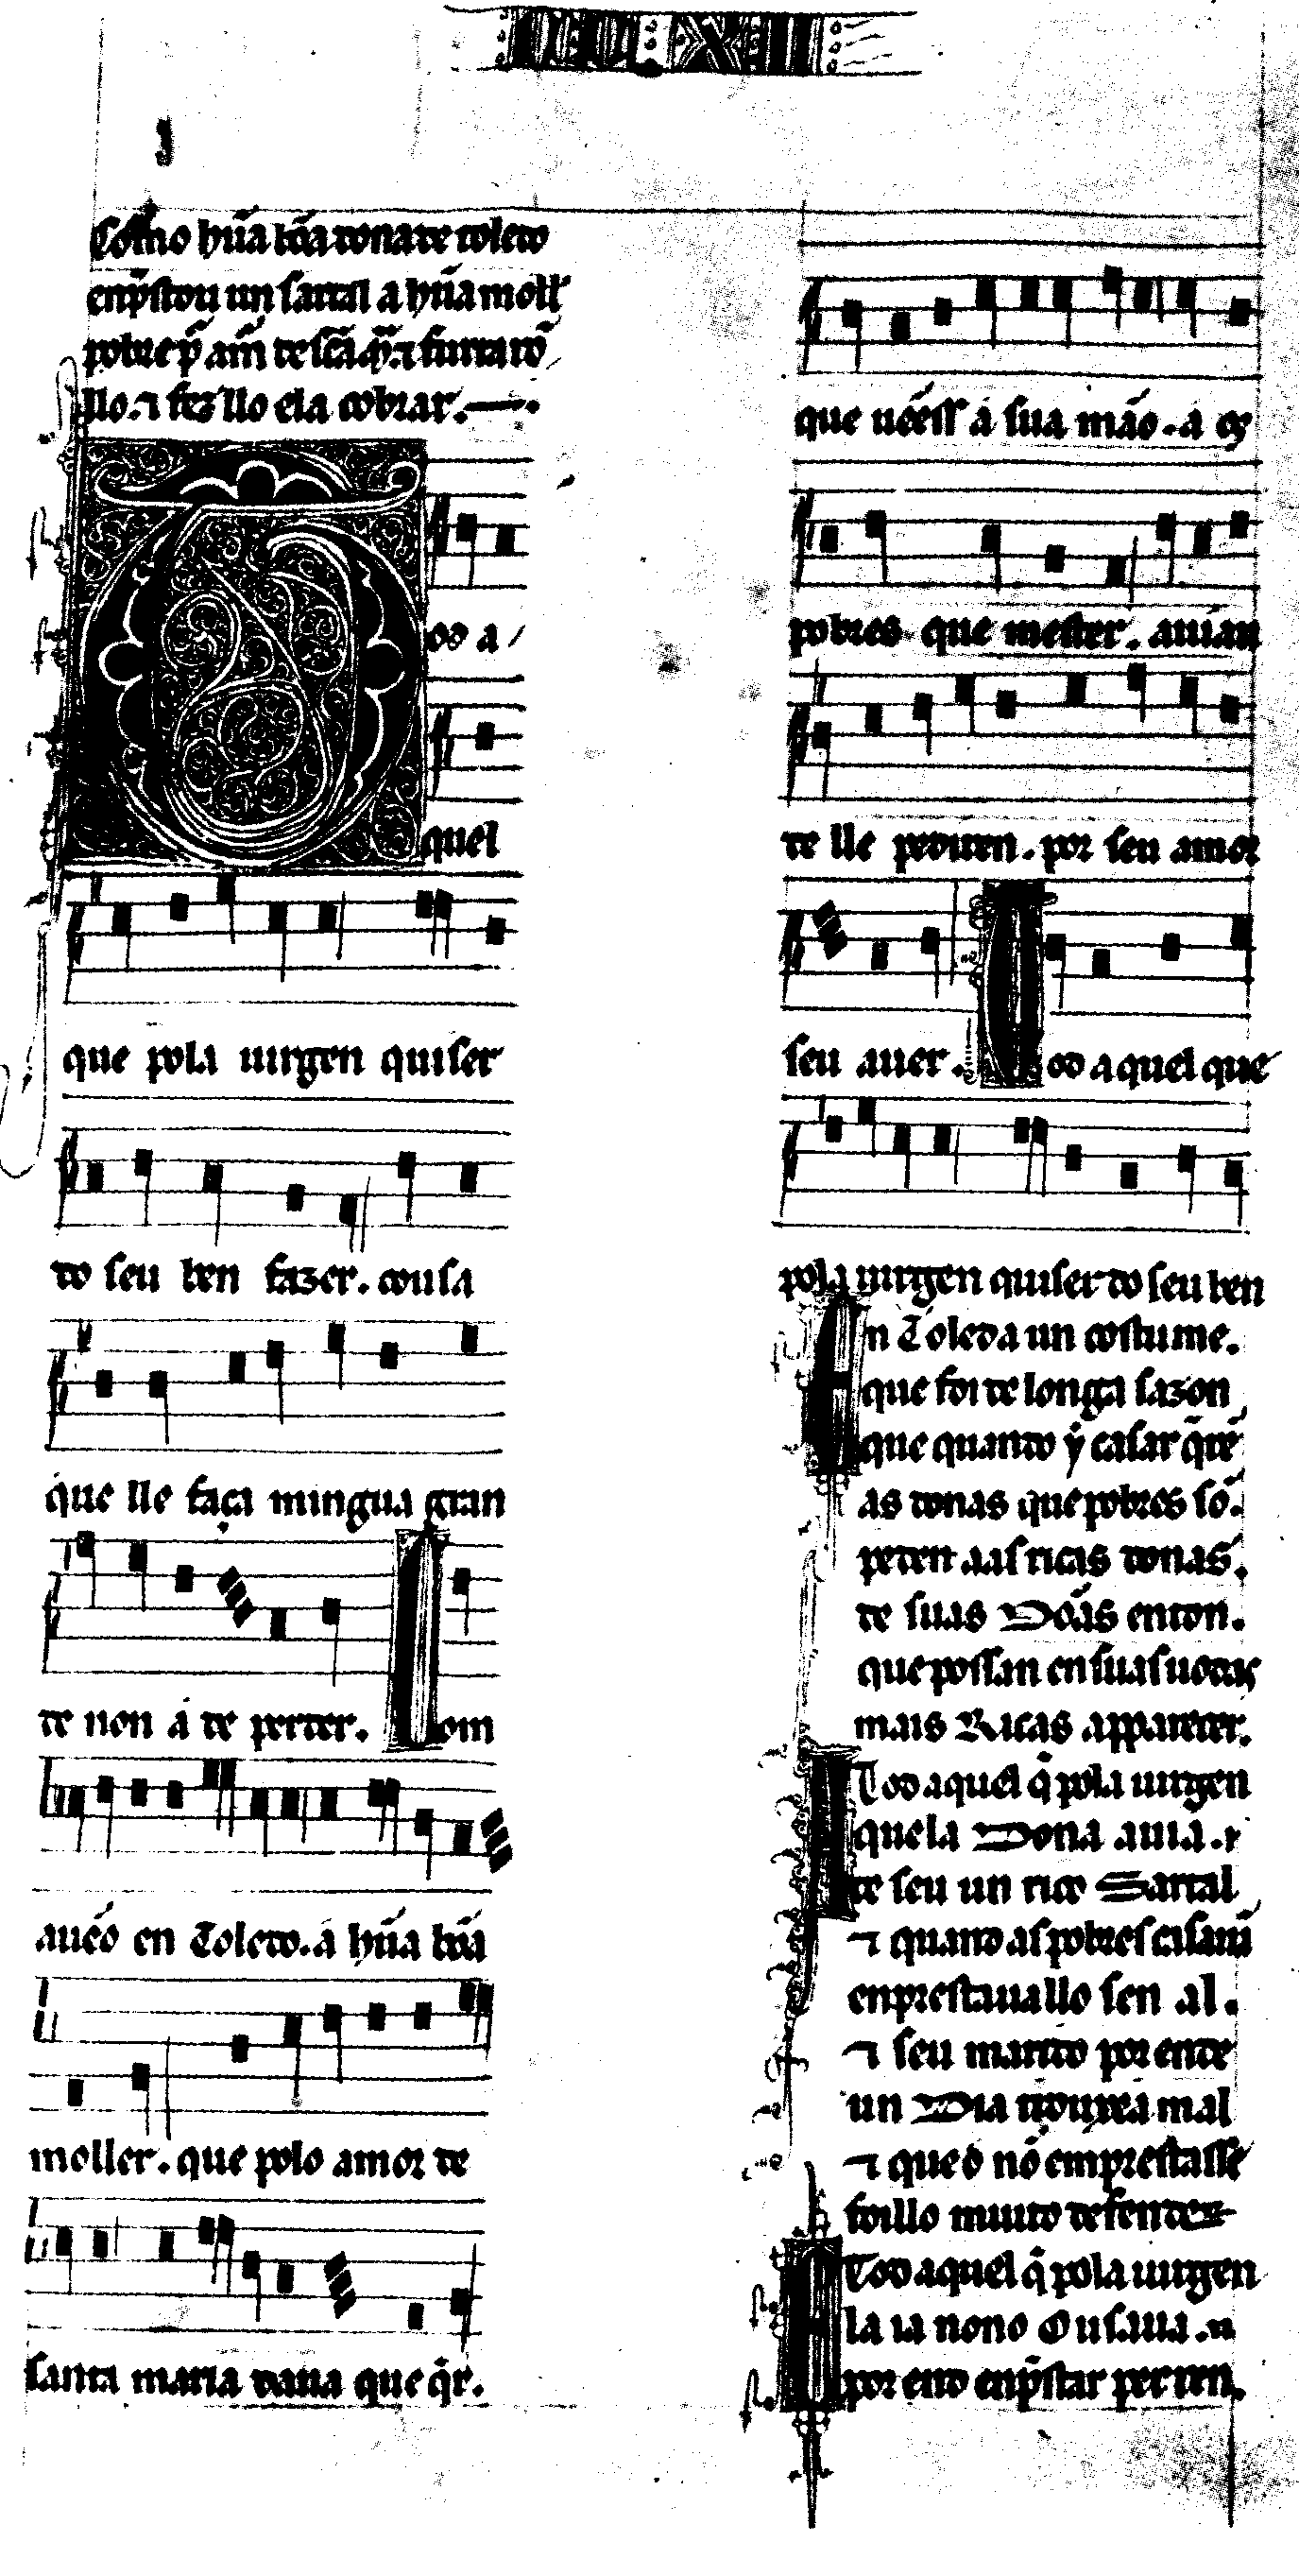 Como hũa bõa dona de toledo
enp̃stou un sartal a hũa moll̃
pobre p̃ am̃ de scã m̃. ⁊ furtarõ
llo. ⁊ fez llo ela cobrar.
Tod a
quel
que pola uirgen quiser
do seu ben fazer. cousa
que lle faça mingua gran
de non á de perder. Dom
auẽo en Toledo. a hũa bõa
moller. que polo amor de
santa maria daua que q̃r.
que uẽess á sua mão. a os
pobres que mester. auian
de lle pediren. por seu amor
seu auer. Tod aquel que
pola uirgen quiser do seu ben
En Toleda un costume.
que foi de longa sazon
que quando ý casar q̃rẽ
as donas que pobres sõ.
peden aas ricas donas.
de suas Dõas enton.
que possan en suas uodas
mais Ricas apparecer.
Tod aquel q̃ pola uirgen
quela Dona auia.
de seu un rico Sartal
⁊ quando as pobres casauã
enprestauallo sen al.
⁊ seu marido por ende
un Dia trouxea mal
⁊ queo nõ emprestasse
foillo muito defender
Tod aquel q̃ pola uirgen
la ia nono Ousaua. n
por end enp̃star per ren.